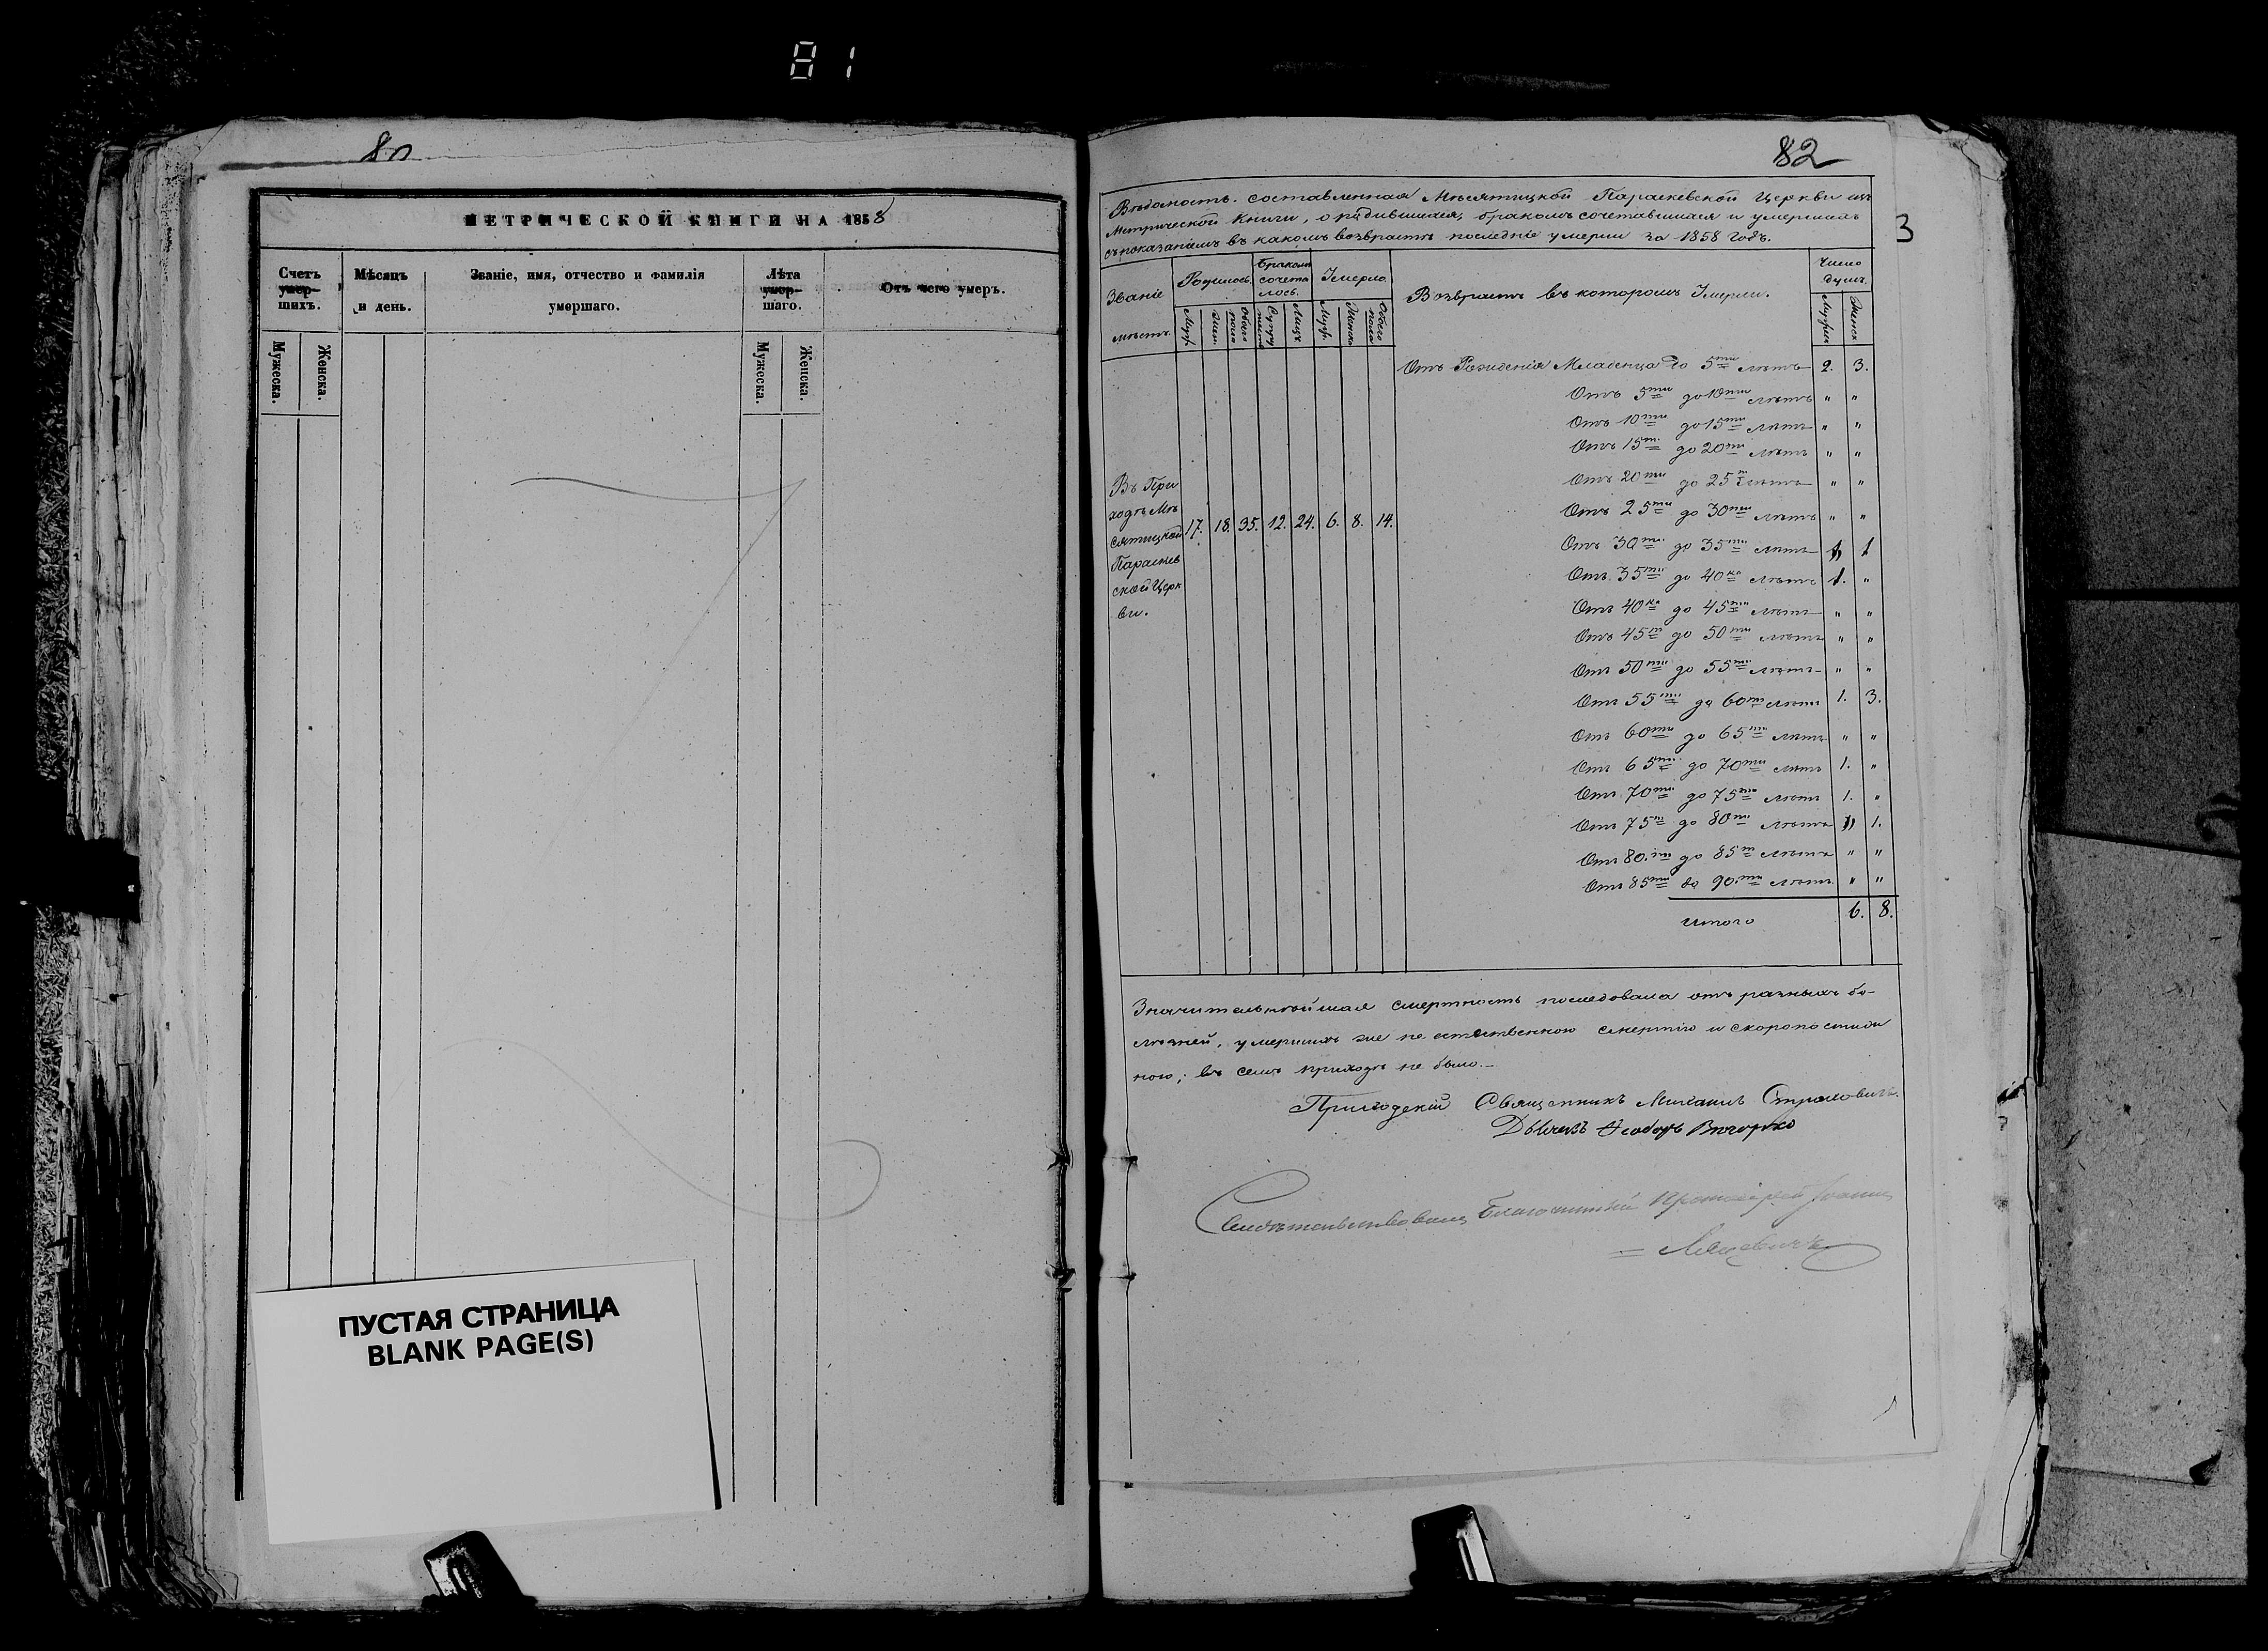 81
80
МЕТРИЧЕСКОЙ КНИГИ НА 1858
Счетъ умер-шихъ.
Мѣсяцъ и день.
Званіе, имя, отчество и фамилія умершаго.
Лѣта умер-шаго.
Отъ чего умеръ.
Мужеска.
Женска.
Мужеска.
Женска.
ПУСТАЯ СТРАНИЦА
BLANK PAGE(S)
82
3
Вѣдомость. составленная Мѣсятицкой Параскевской Церкви изъ
Метрической Книги, о родившихся, бракомъ сочетавшихся и умершихъ
съ показаніемъ въ какомъ возврастѣ послѣдніе умерли за 1858 годъ.
Званіе мѣстъ.
Родилось.
Бракомъ сочета лось.
Умерло.
Возврастъ въ которомъ Умерли.
Число душъ.
Муж.
Жен.
Обоего пола
Супру
Лицъ.
Муж.
Женска
Обоего пола
Мужеск
Женск
Въ При
ходѣ Мѣ
сятицкой
Параскев
ской Церк
ви.
17. 18. 35. 12. 24. 6. 8. 14.
Отъ Рожденія Младенца до 5ти лѣтъ 2. 3.
Отъ 5ти до 10ти лѣтъ " "
Отъ 10ти до 15ти лѣтъ " "
Отъ 15ти до 20ти лѣтъ " "
Отъ 20ти до 25т лѣтъ " "
Отъ 25ти до 30ти лѣтъ " "
Отъ 30ти до 35ти лѣтъ " 1
Отъ 35ти до 40ка лѣтъ 1. "
Отъ 40ка до 45ти лѣтъ " "
Отъ 45ти до 50ти лѣтъ " "
Отъ 50ти до 55ти лѣтъ " "
Отъ 55ти до 60ти лѣтъ 1. 3.
Отъ 60ти до 65ти лѣтъ " "
Отъ 65ти до 70ти лѣтъ 1. "
Отъ 70ти до 75ти лѣтъ 1. "
Отъ 75ти до 80ти лѣтъ " 1.
Отъ 80ти до 85ти лѣтъ " "
Отъ 85ти до 90ти лѣтъ " "
Итого 6. 8.
Значительнѣйшая смертность последовала отъ разныхъ бо-
лѣзней, умершихъ же не естественною смертію и скоропостиж
ною; въ семъ приходѣ не было.–
Приходскій Священникъ Михаилъ
Дьячекъ Ѳеодоръ
Свидѣтельствовалъ Благочинный Протоіерей Іоаннъ